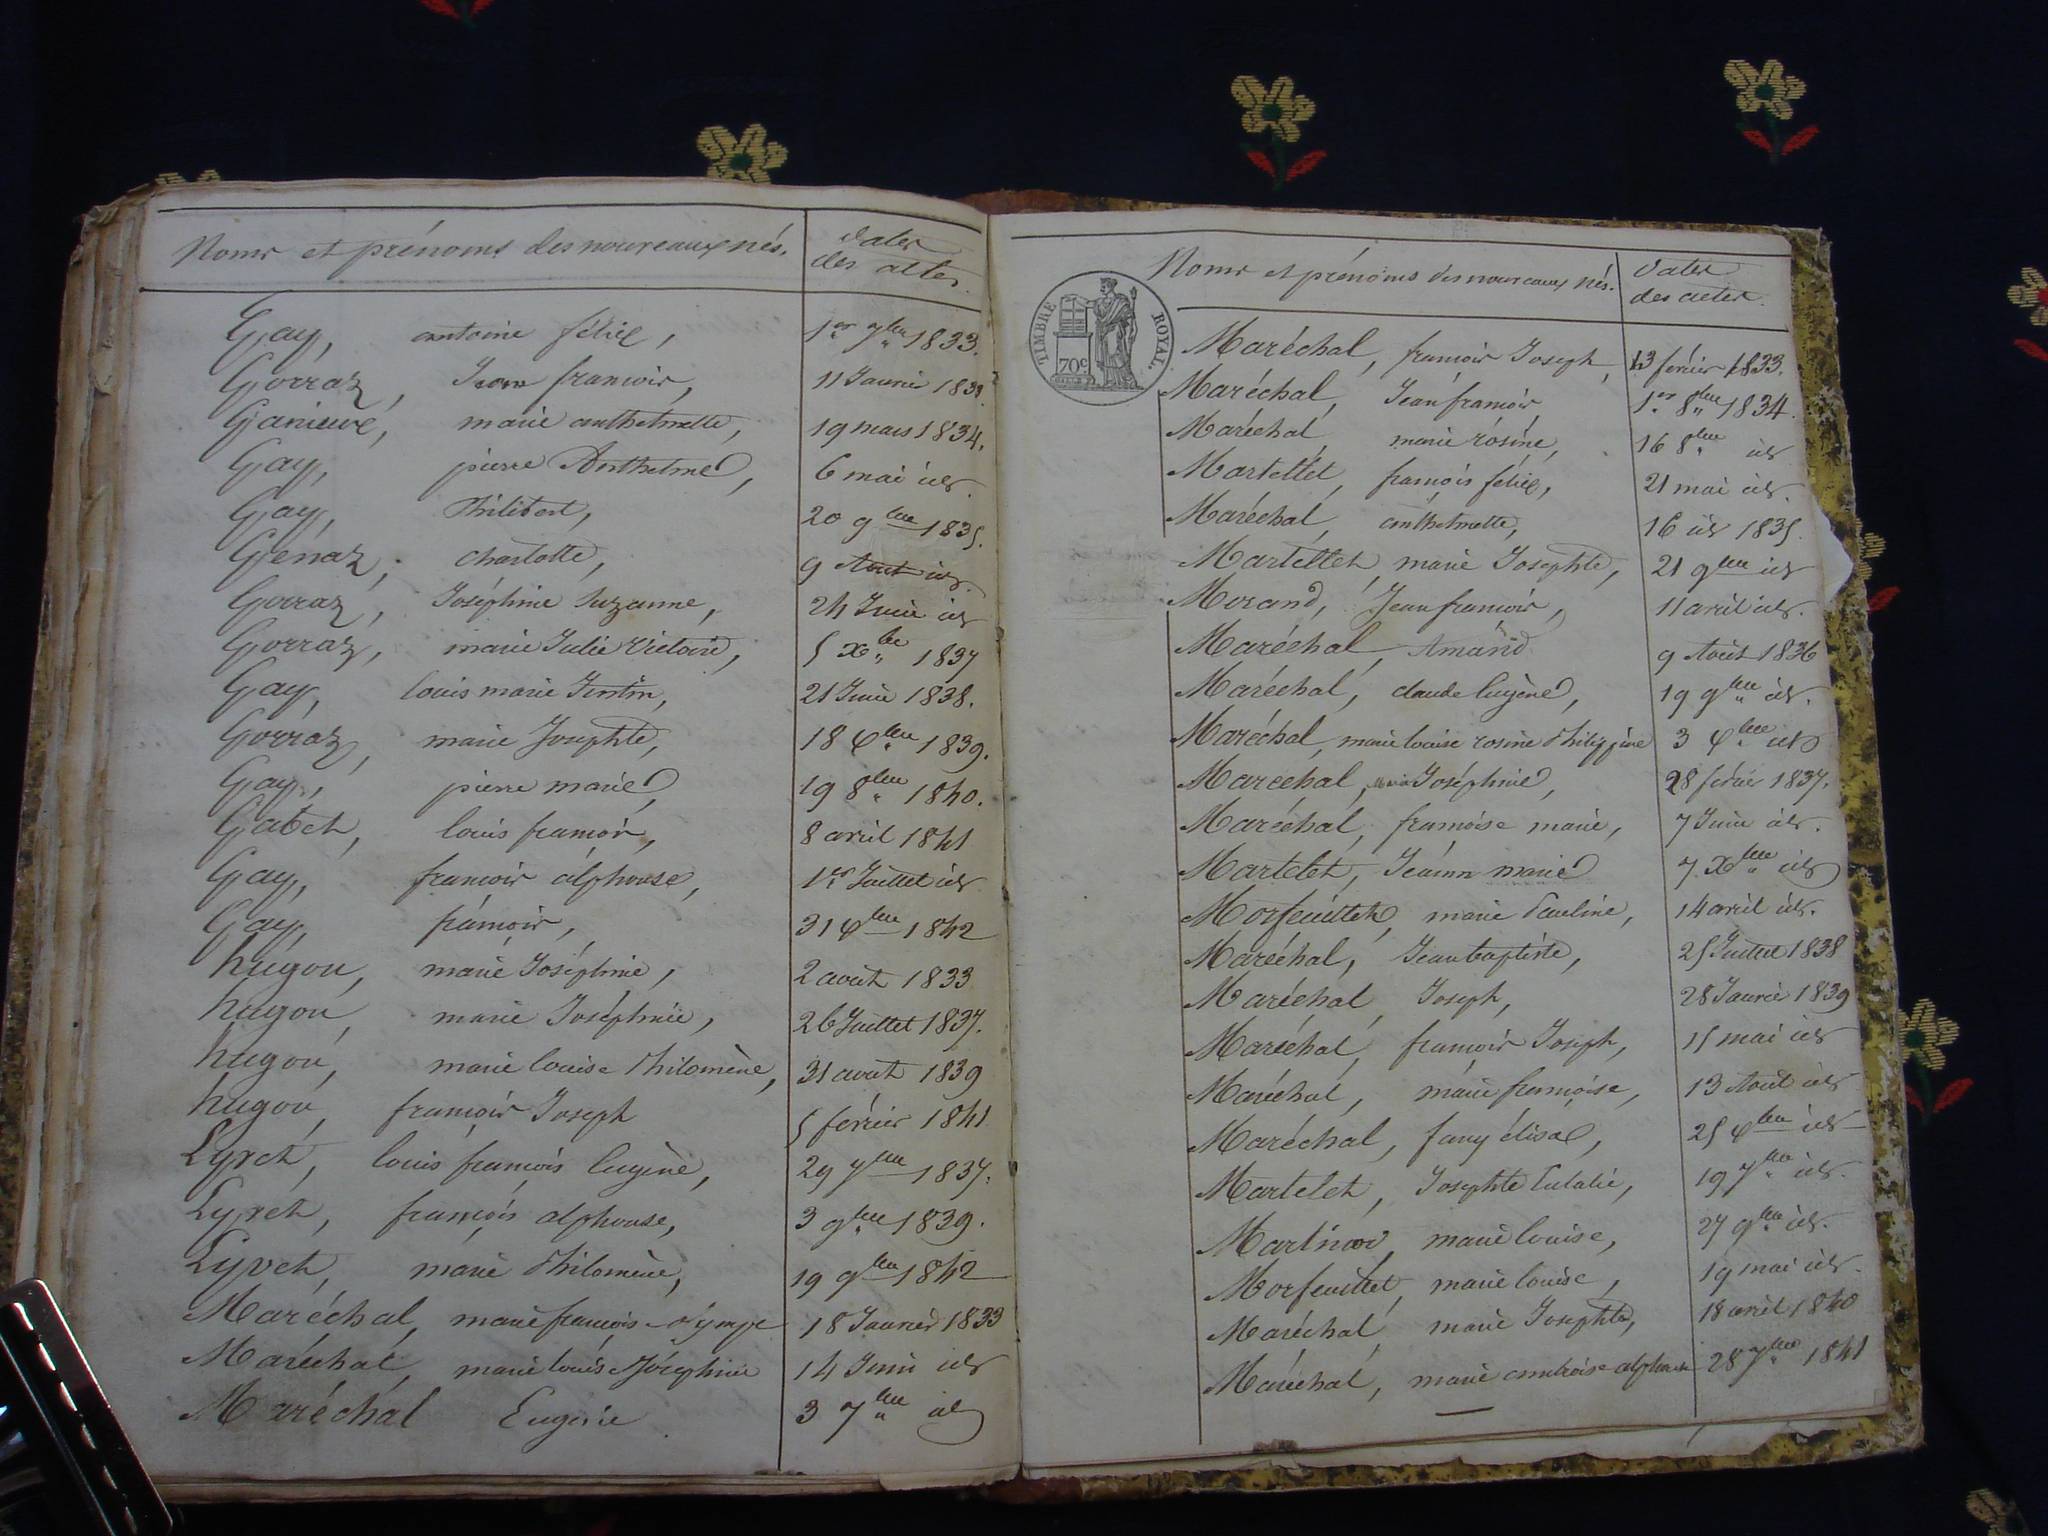 Noms et prénoms des nouveaux nés.
dates
des actes.
Gay, antoine félix, 1er 7bre 1833.
Gorraz, Jean françois, 11 Janvier 1833.
marie anthelmette, 19 mars 1834.
Gay, pierre Anthelme, 6 mai id.
Gay, Philibert, 20 9bre 1835.
Génaz, charlotte, 9 Aout id.
Gorraz, Joséphine Suzanne, 24 Juin id
Gorraz, marie Julie Victoire, 5 Xbre 1837
Gay, louis marie 21 Juin 1838.
Gorraz, marie Josephte, 18 Xbre 1839.
Gay, pierre marie, 19 8bre 1840.
louis françois, 8 avril 1841
Gay, françois alphonse, 1er Juillet id
Gay, françois, 31 Xbre 1842
hugon, marie Joséphine, 2 août 1833
hugon, marie Joséphine, 26 Juillet 1837.
hugon, marie louise Philomène, 31 août 1839
hugon, françois Joseph 5 février 1841
Lyvet, louis françois Eugène, 29 7bre 1837.
Lyvet, françois alphonse, 3 9bre 1839.
Lyvet, marie Philomène, 19 9bre 1842
Maréchal, marie françois 18 Janvier 1833
Maréchal, marie louise Joséphine 14 Juin id
Maréchal Eugénie 3 7bre id
Noms et prénoms des nouveaux nés.
dates
des actes.
TIMBRE ROYAL.
70c
Maréchal, françois Joseph, 13 février 1833.
Maréchal, Jean françois, 1er 8bre 1834.
Maréchal, marie rosine, 16 8bre id
Martellet, françois félix, 21 mai id.
Maréchal, anthelmette, 16 id 1835.
Martellet, marie Josephte, 21 9bre id
Morand, Jean françois, 11 avril id.
Maréchal, Amand 9 Août 1836
Maréchal, claude Eugène, 19 9bre id.
Maréchal, marie louise rosine Philippine 3 Xbre id
Maréchal, marie Joséphine, 28 février 1837.
Maréchal, françoise marie, 7 Juin id.
Martelet, marie 7 Xbre id
Morfeuillet, marie Pauline, 14 avril id.
Maréchal, Jean baptiste, 25 Juillet 1838
Maréchal, Joseph, 28 Janvier 1839
Maréchal, françois Joseph, 15 mai id
Maréchal, marie françoise, 13 Août id
Maréchal, fany élisa, 25 Xbre id
Martelet, Josephte Eulalie, 19 7bre id.
marie louise, 27 9bre id.
Morfeuillet, marie louise, 19 mai id.
Maréchal, marie Josephte, 18 avril 1840
Maréchal, marie ambroise alphonse 28 7bre 1841